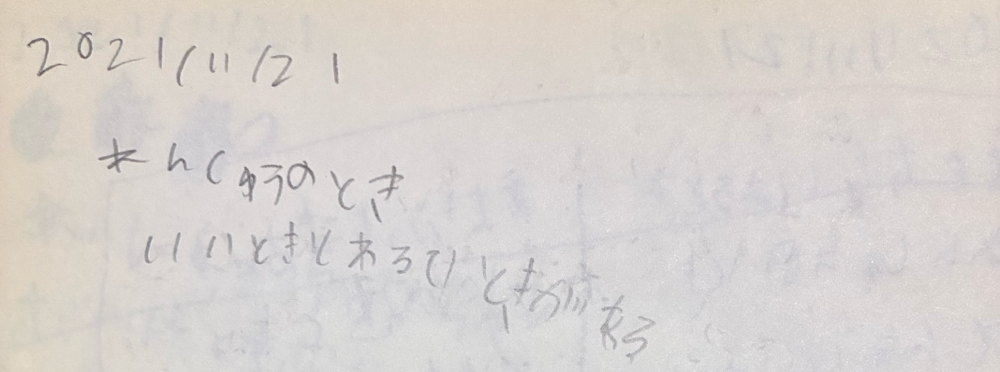 2021/11/21
れんしゅうのとき
いいときとわるいときがある